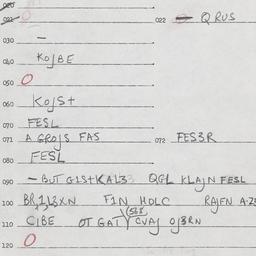 020
021 O 022 — Q RUS
030 —
040 KOJBE
050 O
060 KOJS+
070 FESL
071 A GROJS FAS 072 FES3R
080 FESL
090 — BUT G1S+KAL33 QGL KLAJN FESL
100 F1N HOLC
110 CJBE OT GAT CVAJ OJ3RN
120 O